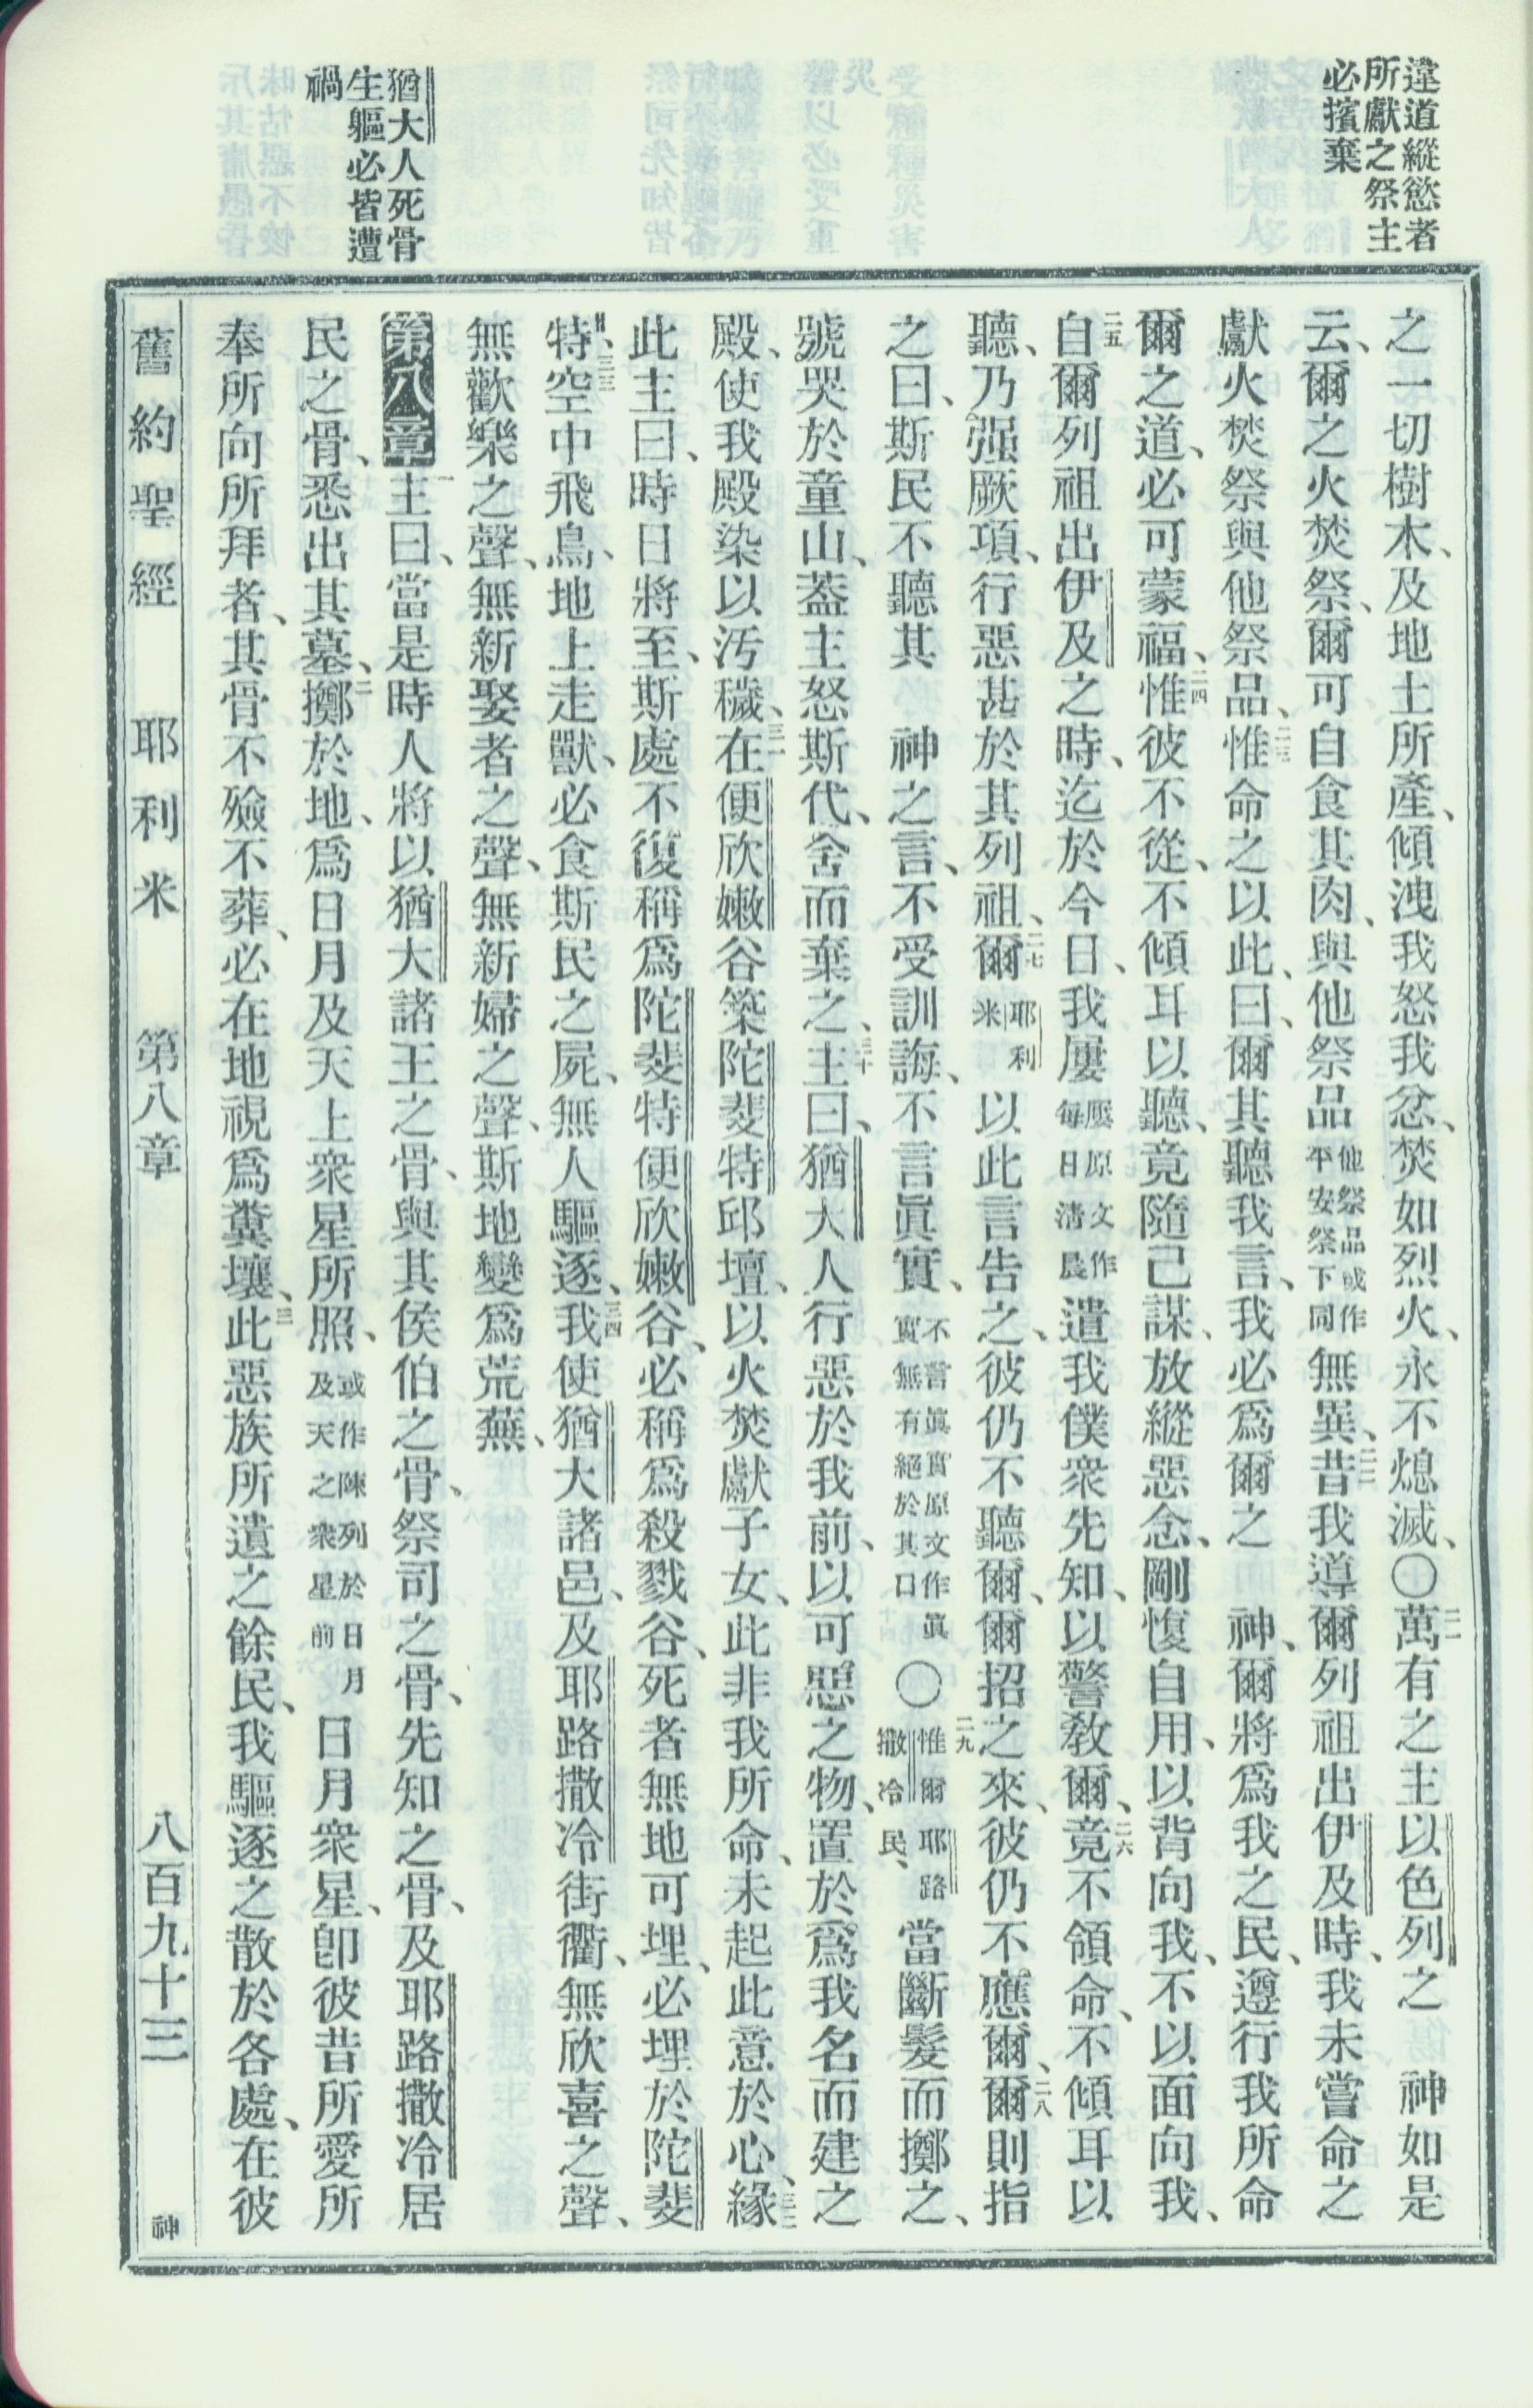 違道縱慾者
所獻之祭主
必擯棄
猶大人死骨
生軀必皆遭
禍
之一切樹木、及地土所產、傾洩我怒我忿、焚如烈火、永不熄滅、〇二一萬有之主以色列之　神如是
云、爾之火焚祭、爾可自食其肉、與他祭品他祭品或作平安祭下同無異、二二昔我導爾列祖出伊及時、我未嘗命之
獻火焚祭與他祭品、二三惟命之以此、曰、爾其聽我言、我必爲爾之　神、爾將爲我之民、遵行我所命
爾之道、必可蒙福、二四惟彼不從、不傾耳以聽、竟隨己謀、放縱惡念、剛愎自用、以背向我、不以面向我、
二五自爾列祖出伊及之時、迄於今日、我屢屢原文作每日清晨遣我僕衆先知、以警教爾、二六竟不領命、不傾耳以
聽、乃强厥項、行惡甚於其列祖、二七爾耶利米以此言告之、彼仍不聽爾、爾招之來、彼仍不應爾、二八爾則指
之曰、斯民不聽其　神之言、不受訓誨、不言眞實、不言眞實原文作眞實無有絕於其口〇二九惟爾耶路撒冷民、當斷髮而擲之、
號哭於童山、蓋主怒斯代、舍而棄之、三十主曰、猶大人行惡於我前、以可惡之物、置於爲我名而建之
殿、使我殿染以汚穢、三一在便欣嫩谷築陀斐特邱壇、以火焚獻子女、此非我所命、未起此意於心、三二緣
此主曰、時日將至、斯處不復稱爲陀斐特便欣嫩谷、必稱爲殺戮谷、死者無地可埋、必埋於陀斐
特、三三空中飛鳥、地上走獸、必食斯民之屍、無人驅逐、三四我使猶大諸邑、及耶路撒冷街衢、無欣喜之聲、
無歡樂之聲、無新娶者之聲、無新婦之聲、斯地變爲荒蕪、
第八章一主曰、當是時人將以猶大諸王之骨、與其侯伯之骨、祭司之骨、先知之骨、及耶路撒冷居
民之骨、悉出其墓、二擲於地、爲日月及天上衆星所照、或作陳列於日月及天之衆星前日月衆星、卽彼昔所愛所
奉所向所拜者、其骨不殮不葬、必在地視爲糞壤、三此惡族所遺之餘民、我驅逐之散於各處、在彼
舊約聖經　耶利米　第八章　八百九十三　神